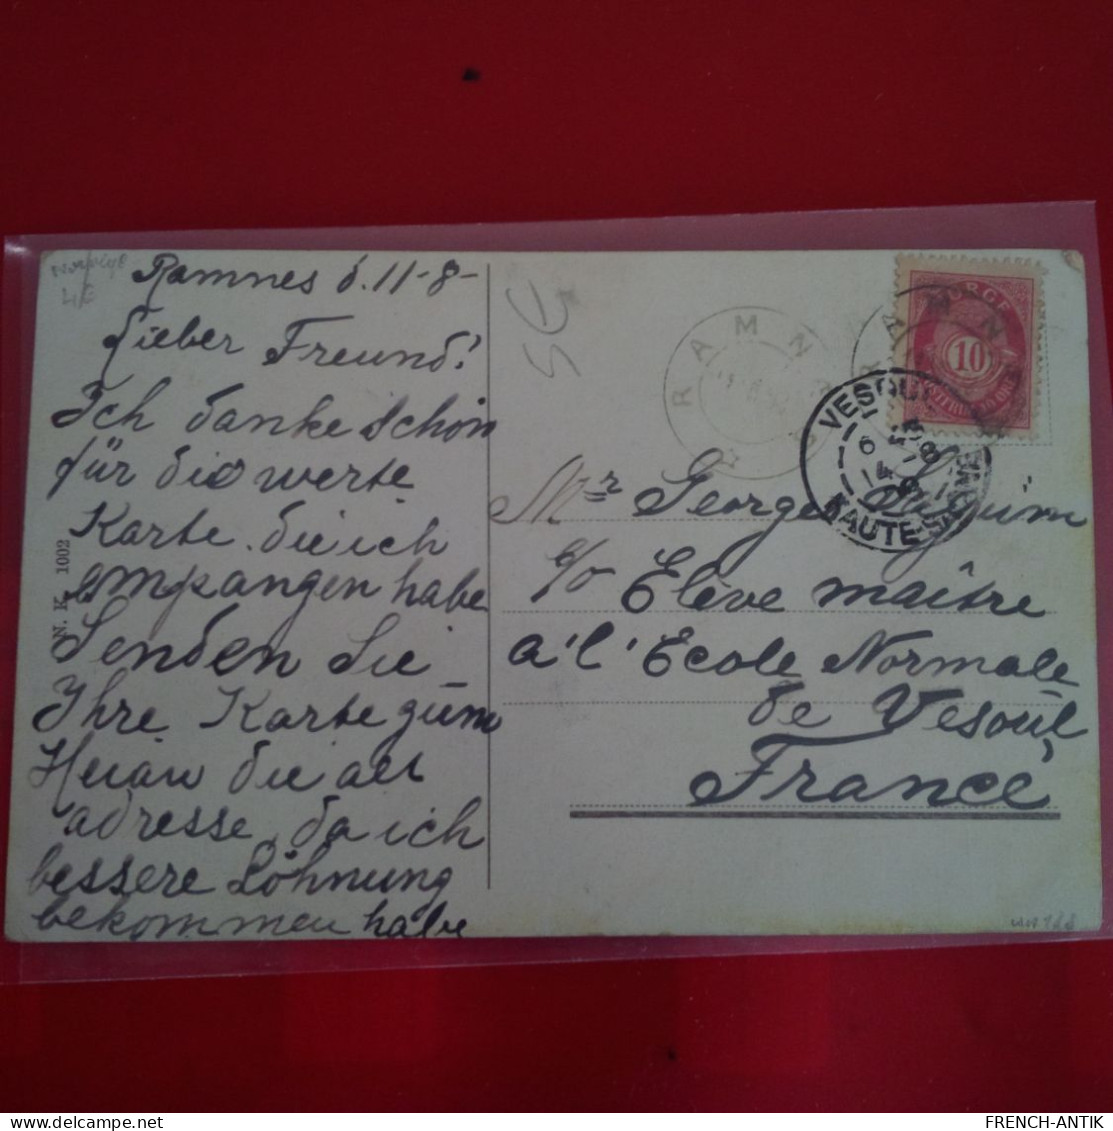 Ramnes d. 11-8-
Lieber Freund!
Ich danke schön
für die werte
Karte. die ich
empfangen habe
Senden Sie
Ihre Karte zum
die alt
adresse, da ich
bessere Löhnung
bekommen habe
W. K. 1002
RAMNES
NORGE
10
VESOUL
HAUTE-SAONE
Mr Georges
c/o Elève maître
a'l'Ecole Normale
de Vesoul,
France
FRENCH-ANTIK